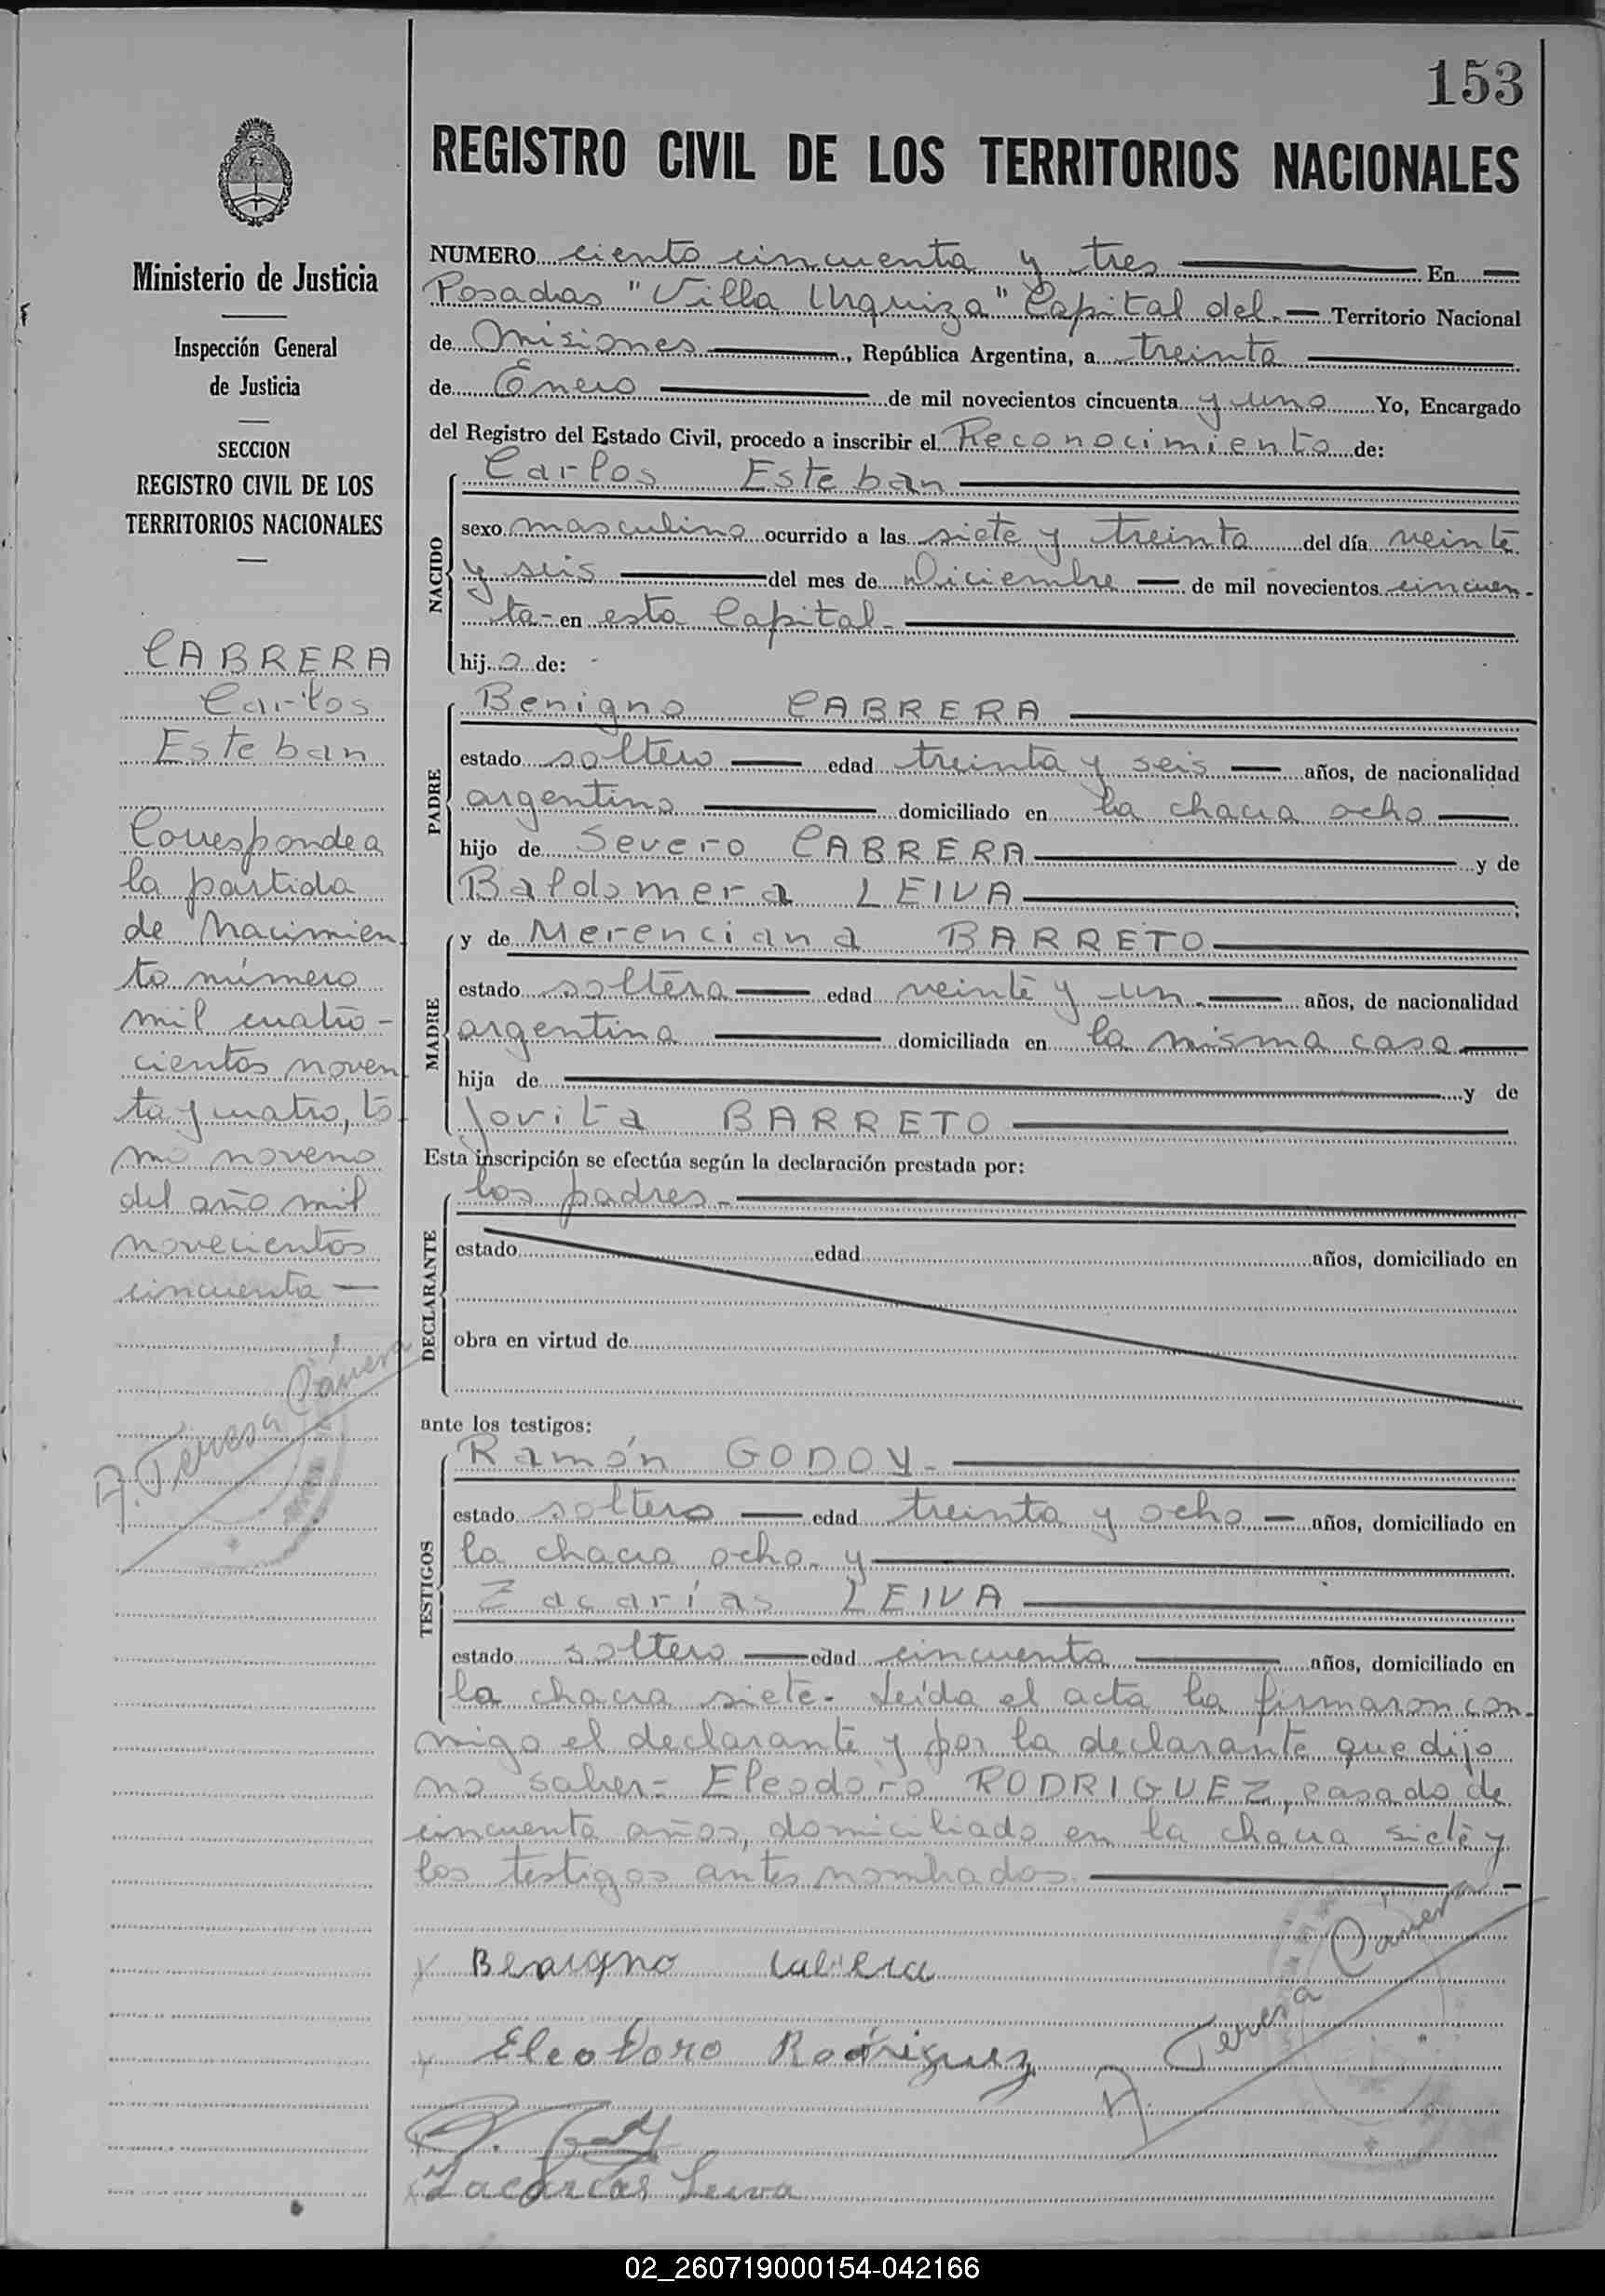 153
REGISTRO CIVIL DE LOS TERRITORIOS NACIONALES
Ministerio de Justicia
Inspección General
de Justicia
SECCION
REGISTRO CIVIL DE LOS
TERRITORIOS NACIONALES
CABRERA
Carlos
Esteban
Corresponde a
la partida
de Nacimien
to número
mil cuatro-
cientos noven
ta y cuatro, to
mo noveno
del año mil
novecientos
cincuenta
A. Teresa Cánera
NUMERO ciento cincuenta y tres En
Posadas "Villa Urquiza" Capital del- Territorio Nacional
de Misiones, República Argentina, a treinta
de Enero de mil novecientos cincuenta y uno Yo, Encargado
del Registro del Estado Civil, procedo a inscribir el Reconocimiento de:
NACIDO
Carlos Esteban
sexo masculino ocurrido a las siete y treinta del día veinte
y seis del mes de Diciembre de mil novecientos cincuen-
ta- en esta Capital-
hijo de:
PADRE
Benigno CABRERA
estado soltero edad treinta y seis años, de nacionalidad
argentino domiciliado en la chacra ocho
hijo de Severo CABRERA y de
Baldomera LEIVA
MADRE
y de Merenciana BARRETO
estado soltera edad veinte y un- años, de nacionalidad
argentina domiciliada en la misma casa
hija de y de
Jovita BARRETO
Esta inscripción se efectúa según la declaración prestada por:
DECLARANTE
los padres-
estado edad años, domiciliado en
obra en virtud de
ante los testigos:
TESTIGOS
Ramón GODOY-
estado soltero edad treinta y ocho años, domiciliado en
la chacra ocho- y
Zacarías LEIVA
estado soltero edad cincuenta años, domiciliado en
la chacra siete- Leída el acta la firmaron con-
migo el declarante y por la declarante que dijo
no saber- Eleodoro RODRIGUEZ, casado de
cincuenta años, domiciliado en la chacra siete y
los testigos antes nombrados
Benigno Cabrera
Eleodoro Rodriguez
A. Teresa Cánera
Zacarias Leiva
02_260719000154-042166